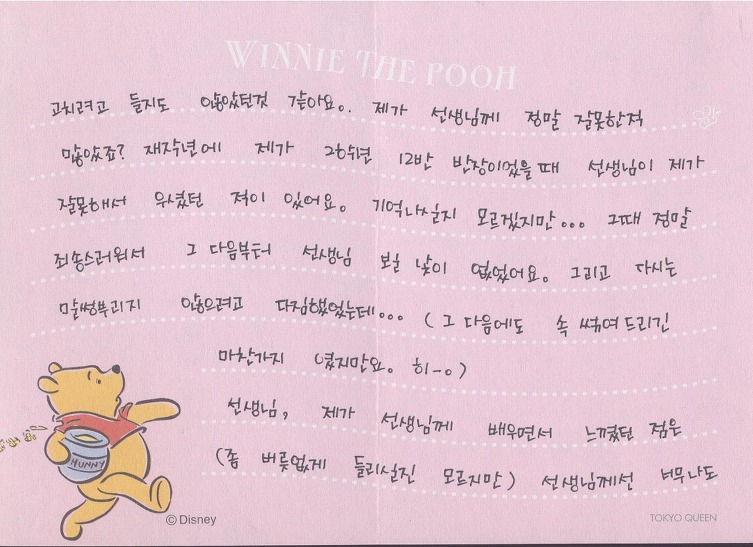 WINNIE THE POOH
고치려고 들지도 않았던것 같아요. 제가 선생님께 정말 잘못한적
많았죠? 재작년에 제가 2학년 12반 반장이었을때 선생님이 제가
잘못해서 우셨던 적이 있어요. 기억나실지 모르겠지만... 그때 정말
죄송스러워서 그 다음부터 선생님 보실 낯이 없었어요. 그리고 다시는
말썽부리지 않으려고 다짐했었는데... (그 다음에도 속 썩여 드리긴
마찬가지 였지만요. 히-.)
선생님, 제가 선생님께 배우면서 느꼈던 점은
(좀 버릇없게 들리실진 모르지만) 선생님께선 너무나도
HUNNY
© Disney
TOKYO QUEEN